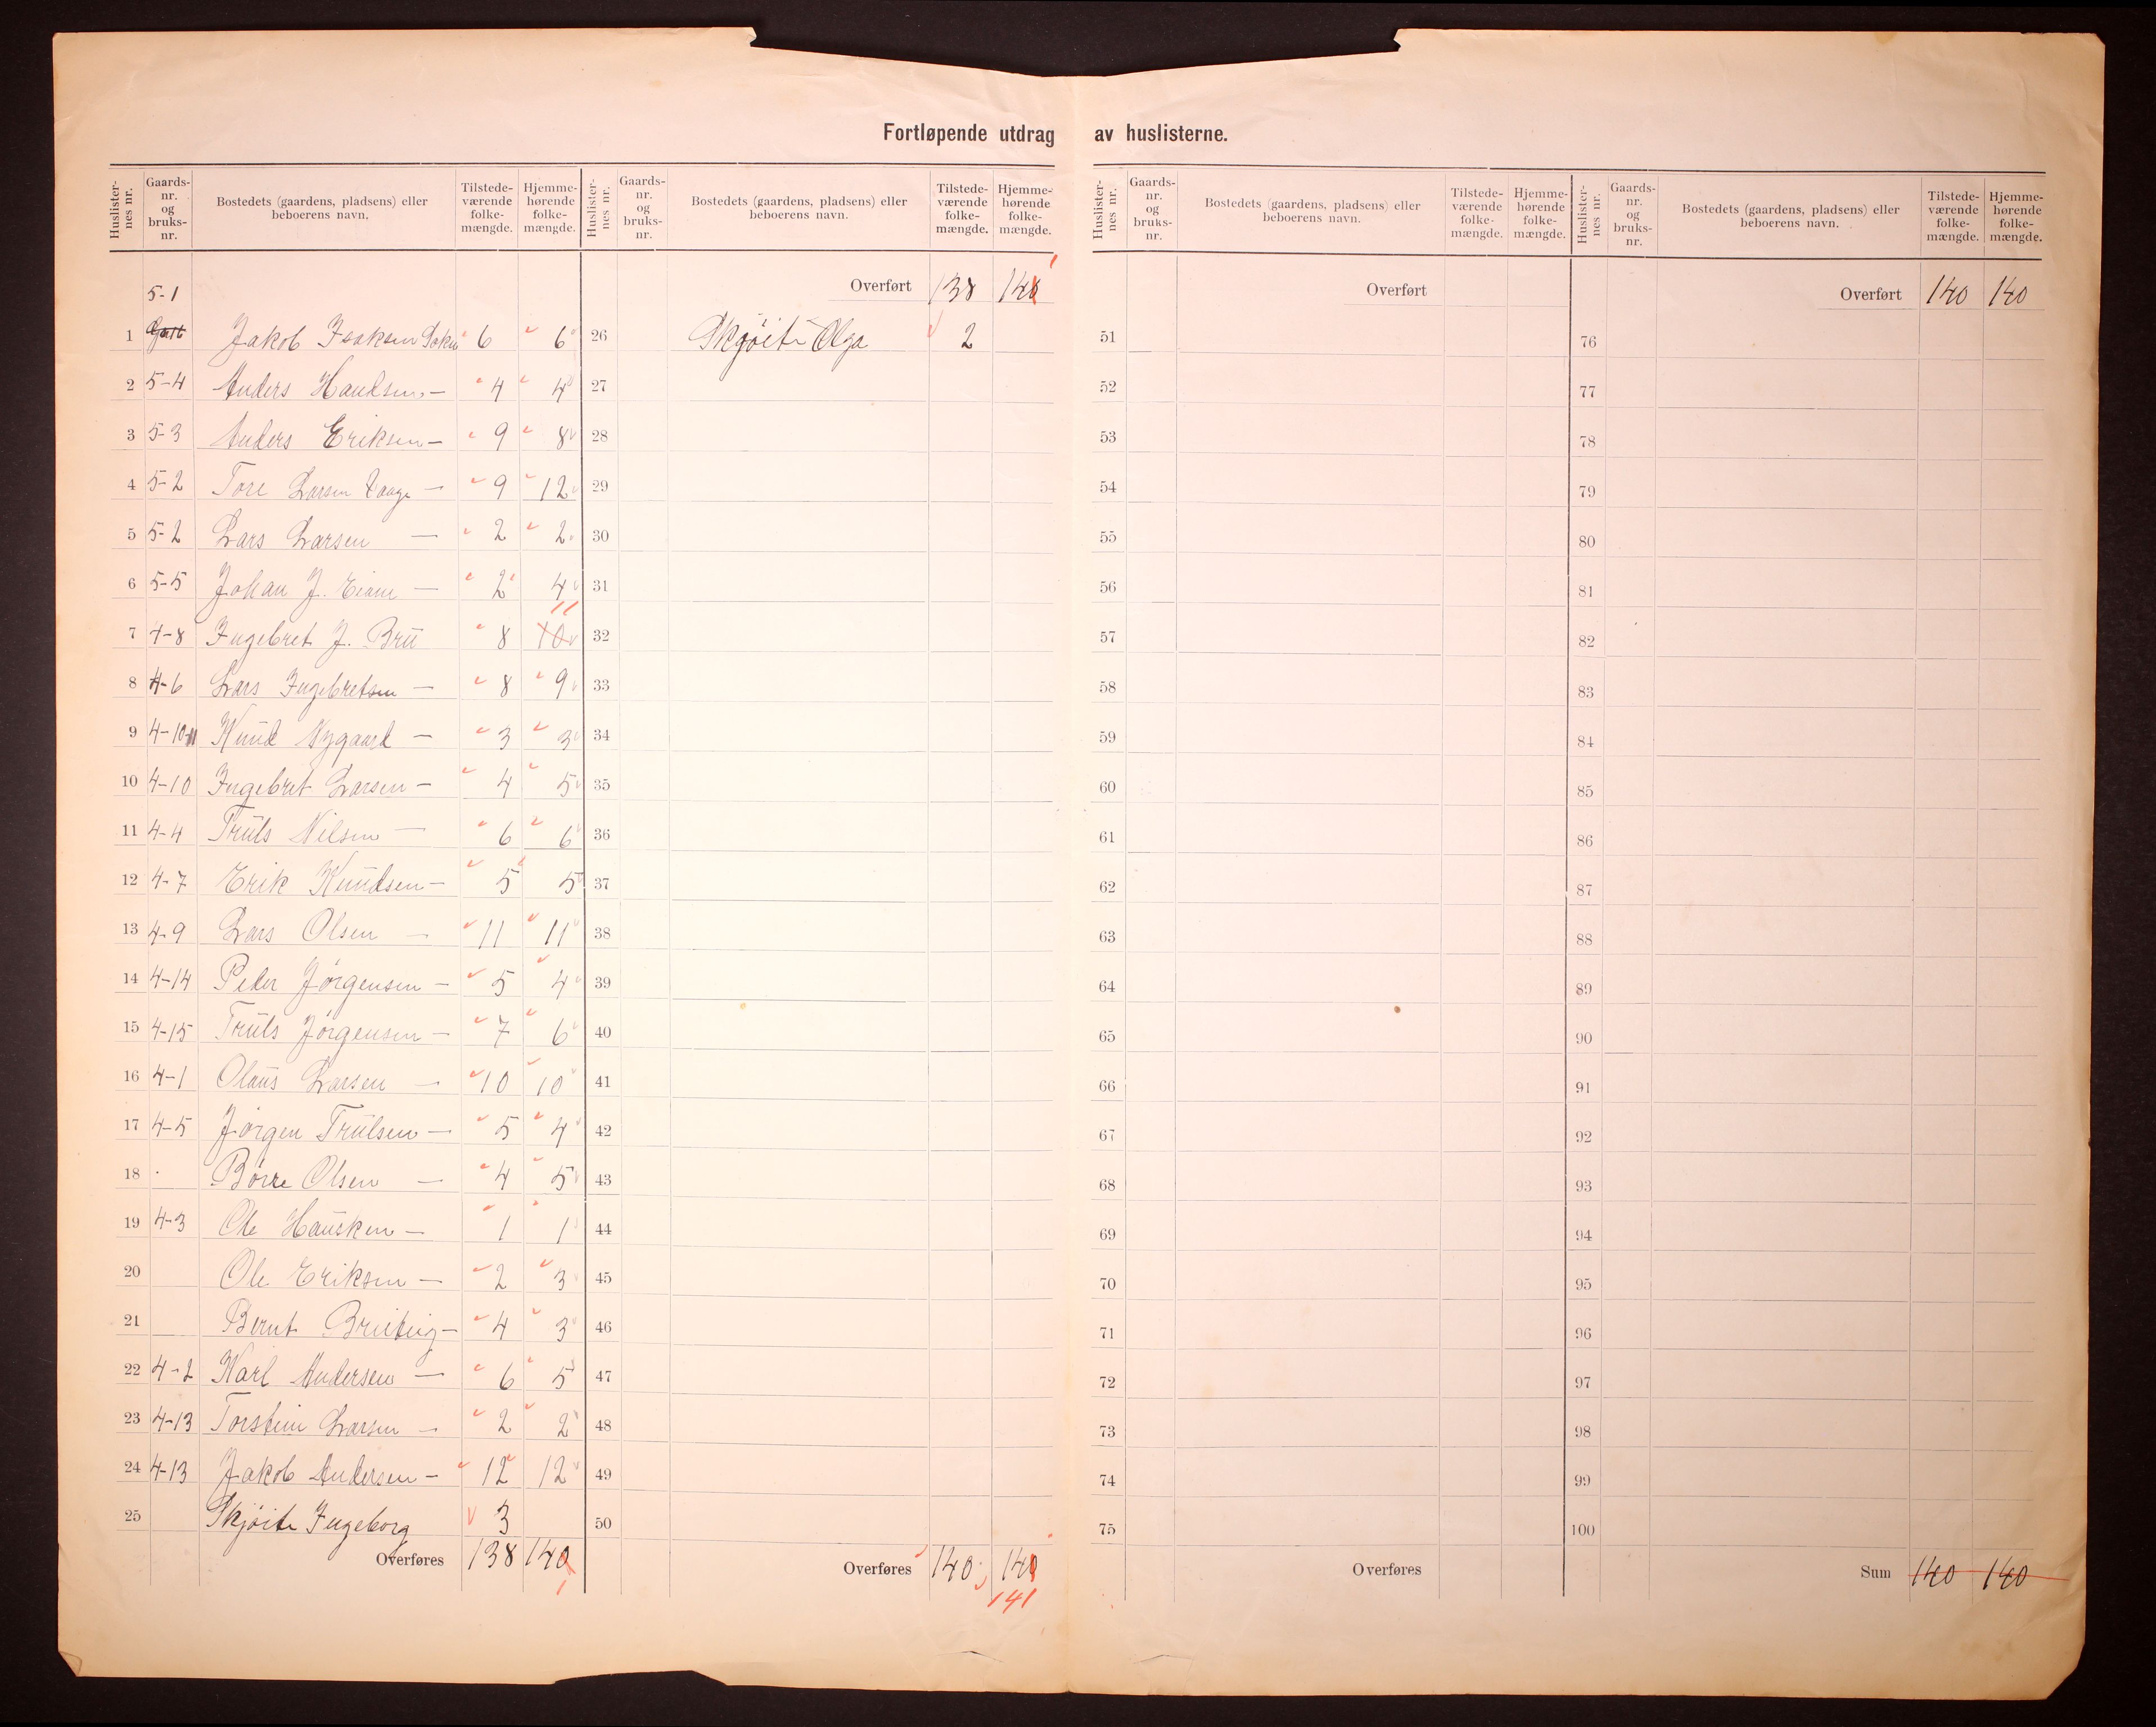 Fortløpende utdrag av huslisterne.
Huslisternes nr. Gaardsnr. og bruksnr. Bostedets (gaardens, pladsens) eller beboerens navn. Tilstedeværende folkemængde. Hjemmehørende folkemængde.
5-1
1 Jakob Isaksen 6 6
2 5-4 Anders Haudsen - 4 4
3 5-3 Anders Eriksen - 9 8
4 5-2 Tore Larsen Vaage - 9 12
5 5-2 Lars Larsen - 2 2
6 5-5 Johan J. Eiane - 2 4
11
7 4-8 Ingebret J. Brü 8 10
8 4-6 Lars Ingebretsen - 8 9
9 4-10-11 Knüd Nygaard - 3 3
10 4-10 Ingebret Larsen - 4 5
11 4-4 Trüls Nilsen - 6 6
12 4-7 Erik Knüdsen - 5 5
13 4-9 Lars Olsen - 11 11
14 4-14 Peder Jörgensen - 5 4
15 4-15 Trüls Jörgensen - 7 6
16 4-1 Olaüs Larsen - 10 10
17 4-5 Jörgen Trülsen - 5 4
18 Börre Olsen - 4 5
19 4-3 Ole Hausken - 1 1
20 Ole Eriksen - 2 3
21 Bernt - 4 3
22 4-2 Karl Andersen - 6 5
23 4-13 Torstein Larsen - 2 2
24 4-13 Jakob Andersen - 12 12
25 Skjöite Ingeborg 3
Overføres 138 140
1
Huslisternes nr. Gaardsnr. og bruksnr. Bostedets (gaardens, pladsens) eller beboerens navn. Tilstedeværende folkemængde. Hjemmehørende folkemængde.
1
Overført 138 140
26 Skjöite Olga 2
27
28
29
30
31
32
33
34
35
36
37
38
39
40
41
42
43
44
45
46
47
48
49
50
Overføres 140 140
141
Huslisternes nr. Gaardsnr. og bruksnr. Bostedets (gaardens, pladsens) eller beboerens navn. Tilstedeværende folkemængde. Hjemmehørende folkemængde.
Overført
51
52
53
54
55
56
57
58
59
60
61
62
63
64
65
66
67
68
69
70
71
72
73
74
75
Overføres
Huslisternes nr. Gaardsnr. og bruksnr. Bostedets (gaardens, pladsens) eller beboerens navn. Tilstedeværende folkemængde. Hjemmehørende folkemængde.
Overført 140 140
76
77
78
79
80
81
82
83
84
85
86
87
88
89
90
91
92
93
94
95
96
97
98
99
100
Sum 140 140